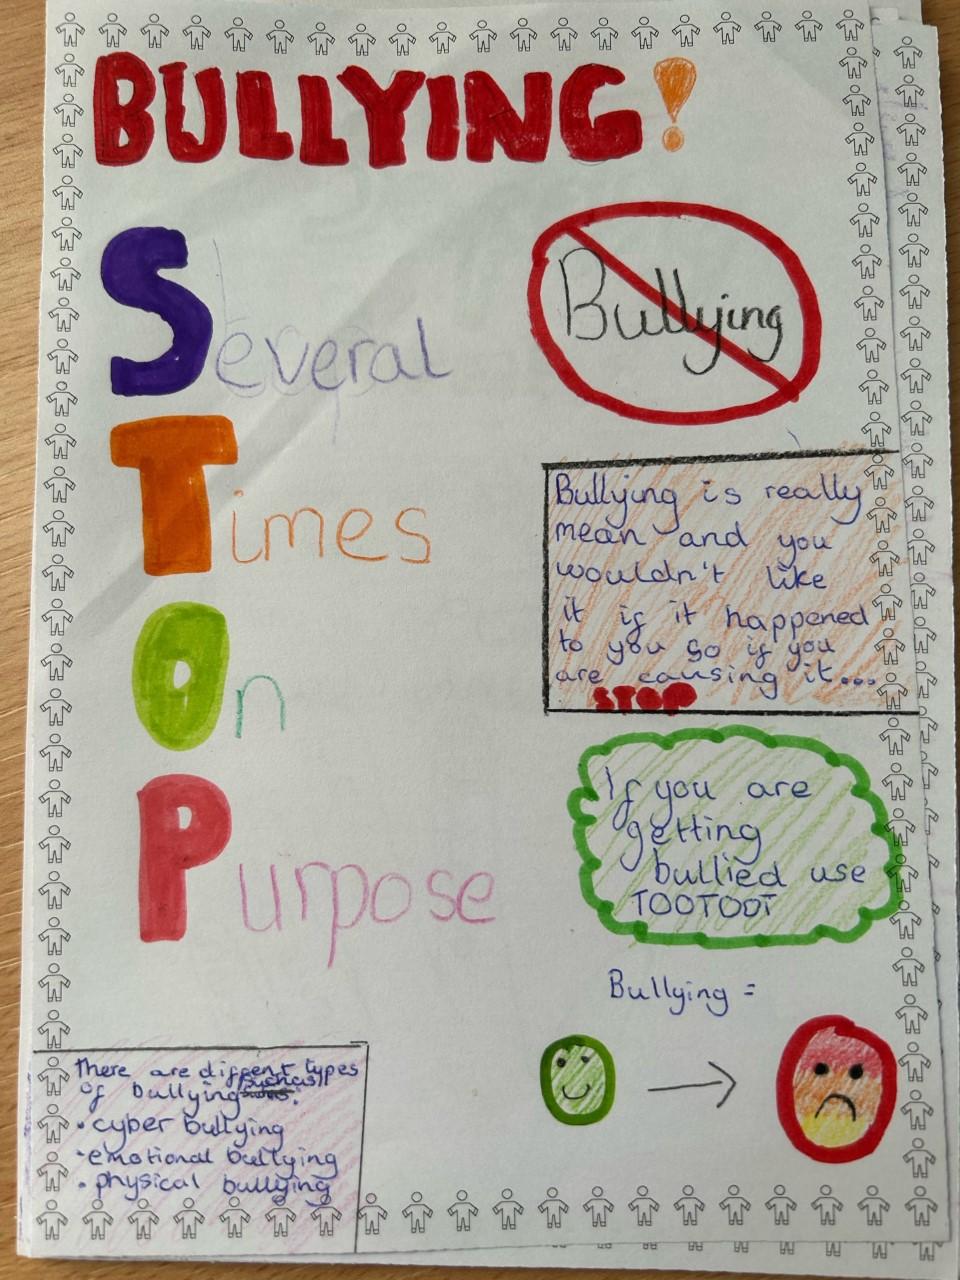 BULLYING!
Several
Times
On
Purpose
Bullying
Bullying is really
mean and you
wouldn't like
it if it happened
to you so if you
are causing it...
STOP
If you are
getting
bullied use
TOOTOOT
Bullying =
There are different types
of bullying such as:
• cyber bullying
• emotional bullying
• physical bullying